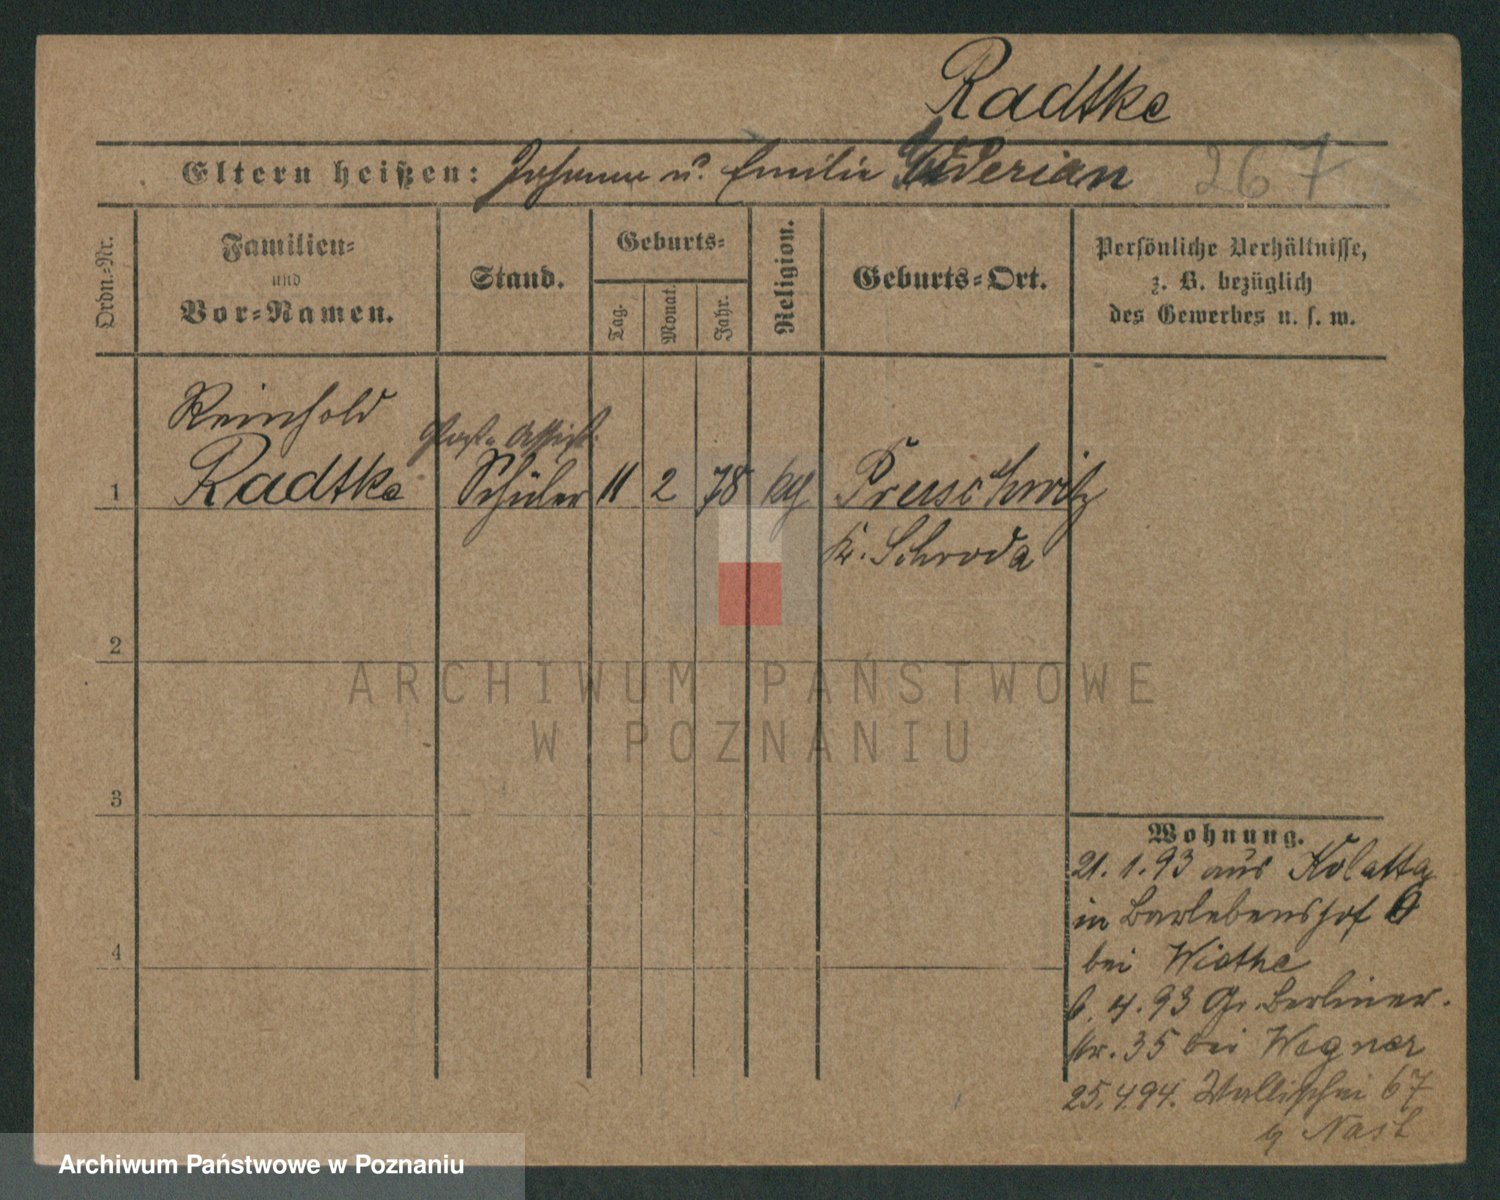 Radtke
Eltern heißen: Johann u. Emilie Guderian 267
Ordn.-Nr.
Familien- und Vor-Namen.
Stand.
Geburts-
Tag.
Monat.
Jahr.
Religion.
Geburts-Ort.
Persönliche Verhältnisse,
z. B. bezüglich
des Gewerbes u. s. w.
Reinhold
Post-Assist.
1 Radtke Schüler 11 2 78 Preuschwitz
Kr. Schroda
2
ARCHIWUM PAŃSTWOWE
W POZNANIU
3
4
Wohnung.
21.1.93 aus Kolatta
in Barlebenshof
bei Wiethe
6.4.93 Gr. Berliner-
str. 35 bei Wegner
25.4.94. Wallischei 67
Archiwum Państwowe w Poznaniu